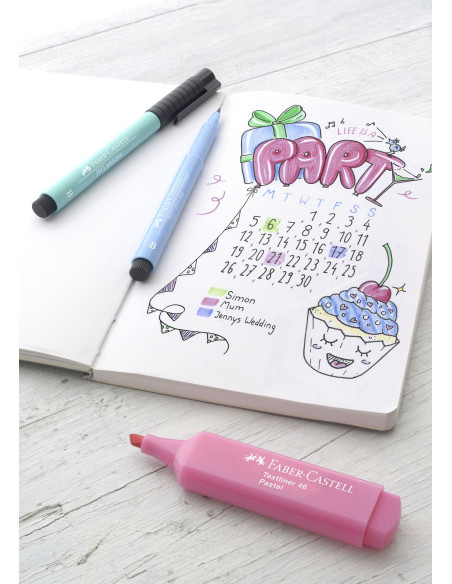 LIFE IS A
PARTY
M T W T F S S
1 2 3 4
5 6 7 8 9 10 11
12 13 14 15 16 17 18
19 20 21 22 23 24 25
26 27 28 29 30
Simon
Mum
Jennys Wedding
FABER-CASTELL
B
FABER-CASTELL
B
FABER-CASTELL
Textliner 46
Pastel